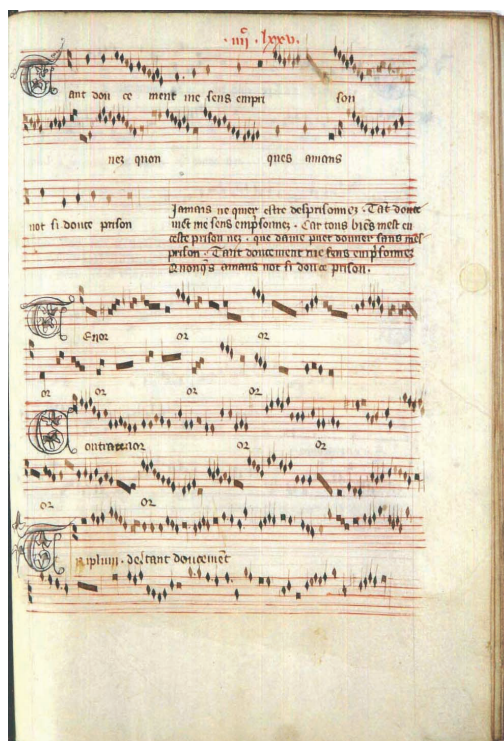 · iiij · lxxv ·
Tant dou ce ment me sens empri son
nez quon ques amans
not si douce prison
Jamais ne quier estre desprisonnez · Tāt douce
mēt me sens emprisonnez · Car tous biēs mest en
ceste prison nez · que dame puet donner sans mes
prison · Tant doucement me sens emprisonnez
Quonqs amans not si douce prison ·
Tenor or or
or or or or
Contratenor or or
or or
Triplum · de tant doucemēt